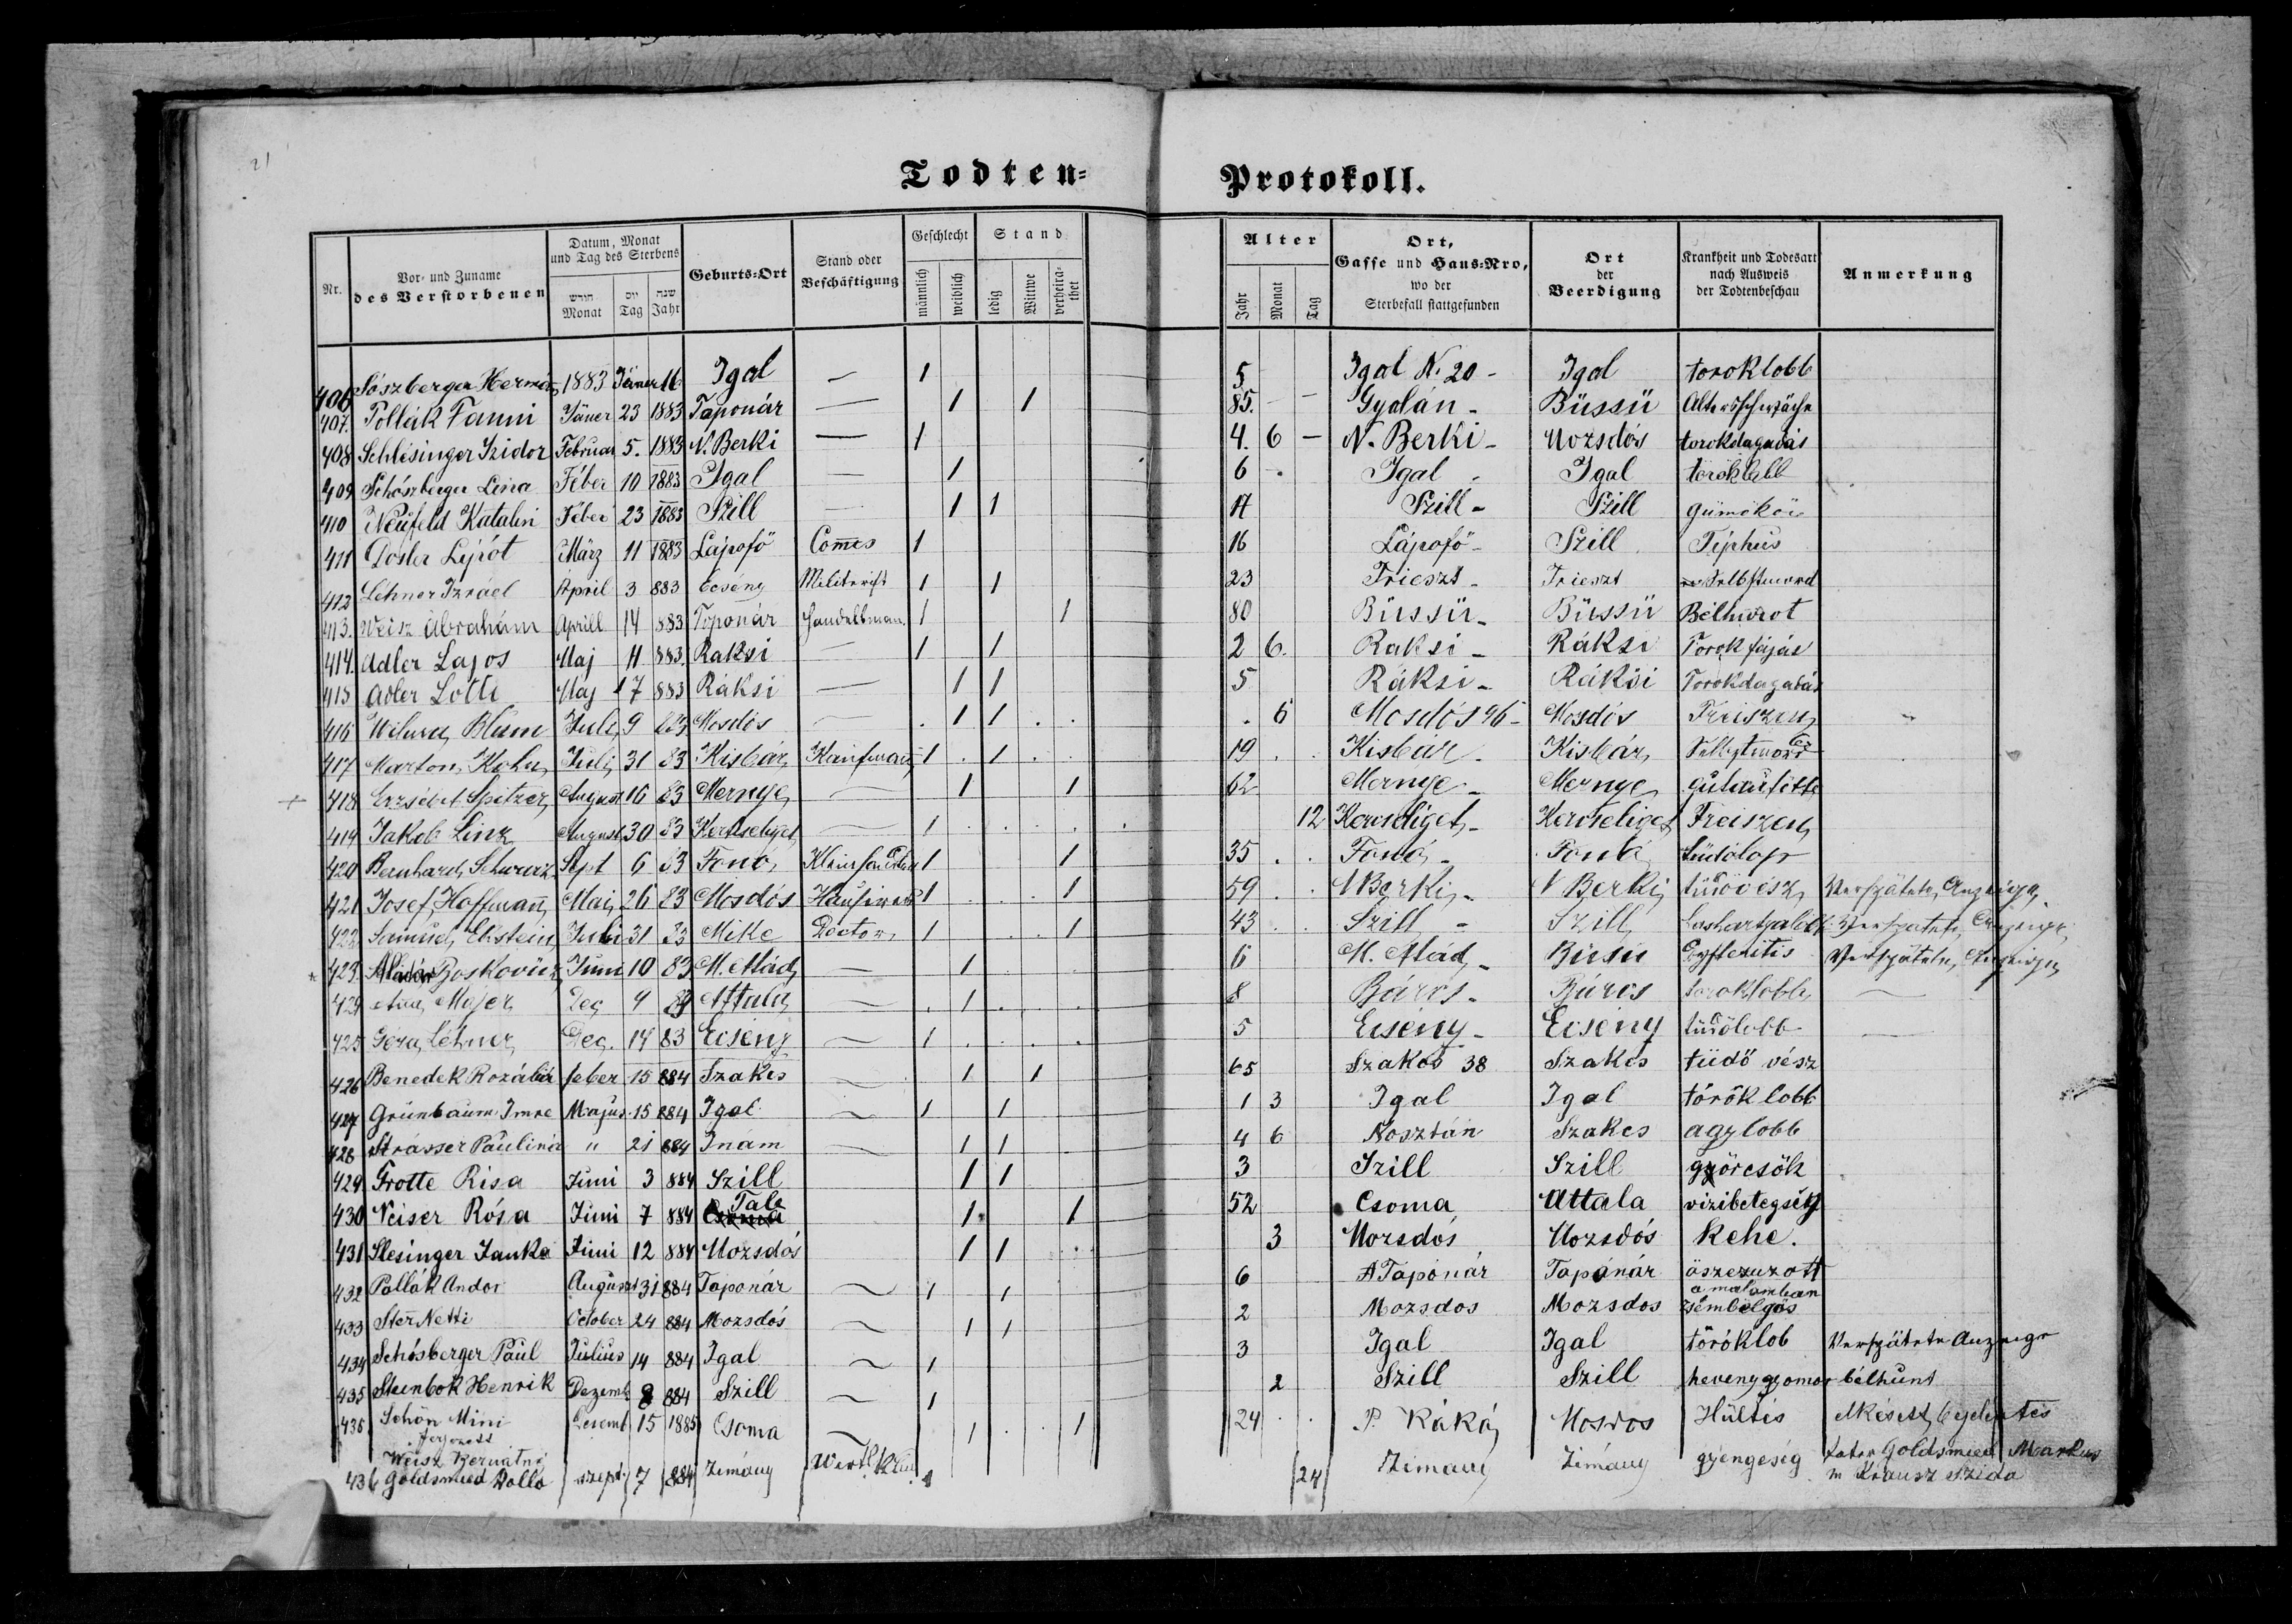 21
Todten= Protokoll.
Nr. | Vor- und Zuname des Verstorbenen | Datum, Monat und Tag des Sterbens | Geburts-Ort | Stand oder Beschäftigung | Geschlecht | Stand | Alter | Ort, Gasse und Haus-Nro, wo der Sterbefall stattgefunden | Ort der Beerdigung | Krankheit und Todesart nach Ausweis der Todtenbeschau | Anmerkung
חודש Monat | יום Tag | שנה Jahr | männlich | weiblich | ledig | Wittwe | verheirathet | Jahr | Monat | Tag
406 Sószberger Hermán 1883 Jäner 16 Igal — 1 5 Igal N. 20 - Igal toroklobb
407. Pollák Fanni Jäner 23 1883 Taponár — 1 1 85. - - Gyalán - Büssü Altersschwäche
408 Schlésinger Izidor Februar 5. 1883 N. Berki — 1 4. 6 - N. Berki - Mozsdós torokdagadás
409 Schószberger Lina Féber 10 1883 Igal — 1 6 - Igal - Igal töröklobb
410 Neüfeld Katalin Féber 23 1883 Szill — 1 1 17 Szill - Szill gümőkór
411 Dosler Lipót März 11 1883 Lápafő Comis 1 16 Lápafő - Szill Tiphus
412 Lehner Izráel April 3 883 Ecsény 1 1 23 Trieszt - Trieszt Selbstmord
413. Weisz Ábrahám Aprill 14 883 Toponár Handelsman. 1 1 80 Büssü - Büssü Bélhurot
414. Adler Lajos Maj 11 883. Raksi — 1 1 2 6. Raksi - Ráksi Torokfájás
415 Adler Lotti Maj 17 883 Ráksi — 1 1 5 Ráksi - Ráksi Torokdagadás
416 Blum Juli 9 83 Mosdós — 1 1 6 Mosdós 96 - Mosdós Freiszen
417 Marton Kohn Juli 31 83 Kisbár Kaufmann 1 1 19 Kisbár - Kisbár Selbstmord
418 Erzsébet Spitzer August 16 83 Mernye — 1 1 62 Mernye - Mernye
419 Jakob Linz August 30 83 Kercseliget — 1 12 Kercseliget - Kercseliget Freiszen
420 Bernhard Schwarz Sept 6 83 Fonó 1 1 35 Fonó - Fonó tüdőlop
421 Josef Hoffmann Mai 26 83 Mosdós 1 1 59 N Berki - N Berki tüdővész Verspätete Anzeige
422 Samuel Ekstein Juli 31 83 Mike Doctor 1 1 43 Szill - Szill Verspätete Anzeige
423 Aladár Boskovicz Juni 10 83 M. Mád — 1 6 M. Mád - Büssü Verspätete Anzeige
424 Anna Majer Dec 9 83 Attala — 1 8 Báros - Báros toroklobb —
425 Géza Lehner Dec. 14 83 Ecseny — 1 5 Ecsény - Ecsény tüdőlobb —
426 Benedek Rozália feber 15 884 Szakcs — 1 1 65 Szakcs 38 Szakcs tüdő vész
427 Grünbaum Imre Majus 15 884 Igal — 1 1 1 3 Igal Igal török lobb
428 Strasser Paulina " 21 884 Inám — 1 1 4 6 Kosztán Szakcs agylobb
429 Trotte Risa Juni 3 884 Szill 1 1 3 Szill Szill györcsök
430 Neiser Rósa Juni 7 884 Csoma Tab 1 1 52 Csoma Attala vizibetegség
431 Slesinger Janka Juni 12 884 Mozsdós 1 1 3 Mozsdós Mozsdós Kehe.
432 Pollák Andor August 31 884 Taponár — 1 1 6 A Taponár Tapónár öszezuzott a malomban
433 Stern Netti October 24 884 Mozsdós — 1 1 2 Mozsdos Mozsdos
434 Schósberger Paul Julius 14 884 Igal — 1 3 Igal Igal töröklob Verspätete Anzeige
435 Steinbok Henrik Dezemb 8 884 Szill — 1 2 Szill Szill heveny gyomor bélhurut
436. Schön Mini Decemb 15 1885 Csoma — 1 1 24 P. Kák Mosdos Hültés
Weisz Bernátné
436 Goldsmied Dollo szept 7 884 Zimány 1 24 Zimany Zimány gyengeség Goldsmied Markus
m Krausz Szida